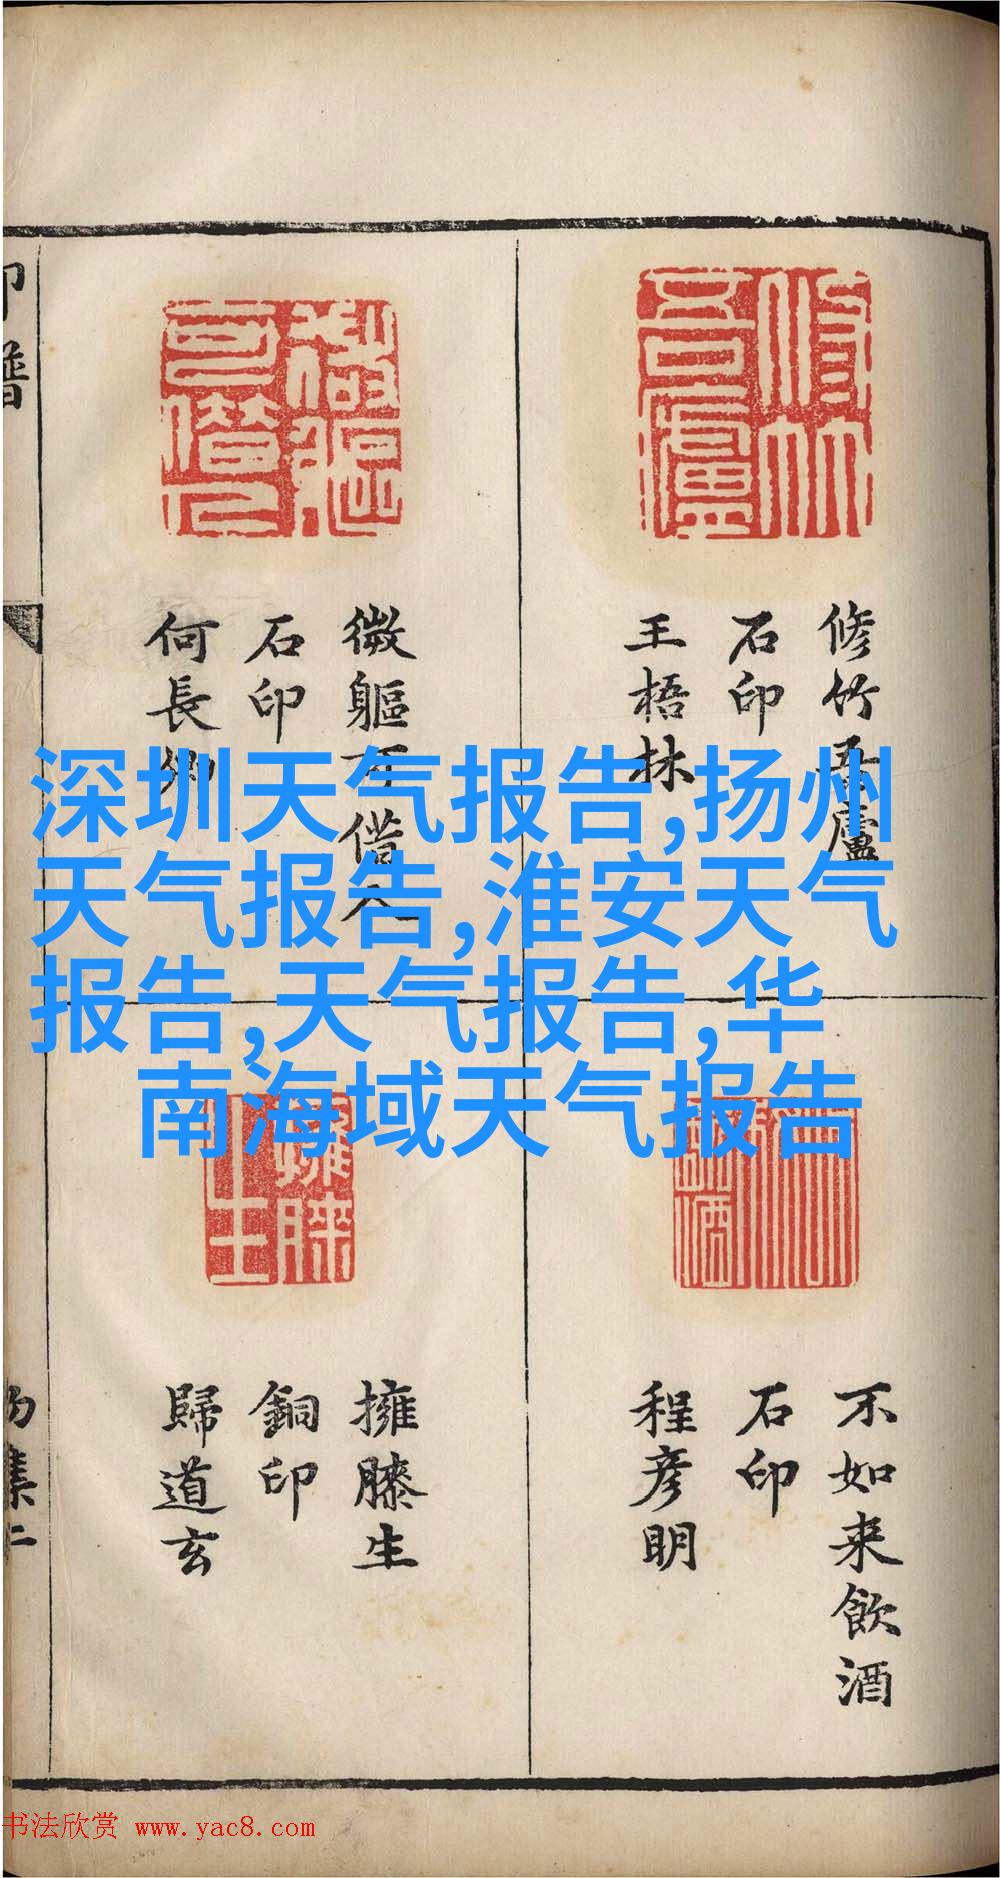 修竹吾廬
石印
王梧林
微軀可借人
石印
何長卿
深圳天气报告,扬州
天气报告,淮安天气
报告,天气报告,华
南海域天气报告
不如来飲酒
石印
程彦明
擁膝生
銅印
歸道玄
印譜
书法欣赏 www.yac8.com